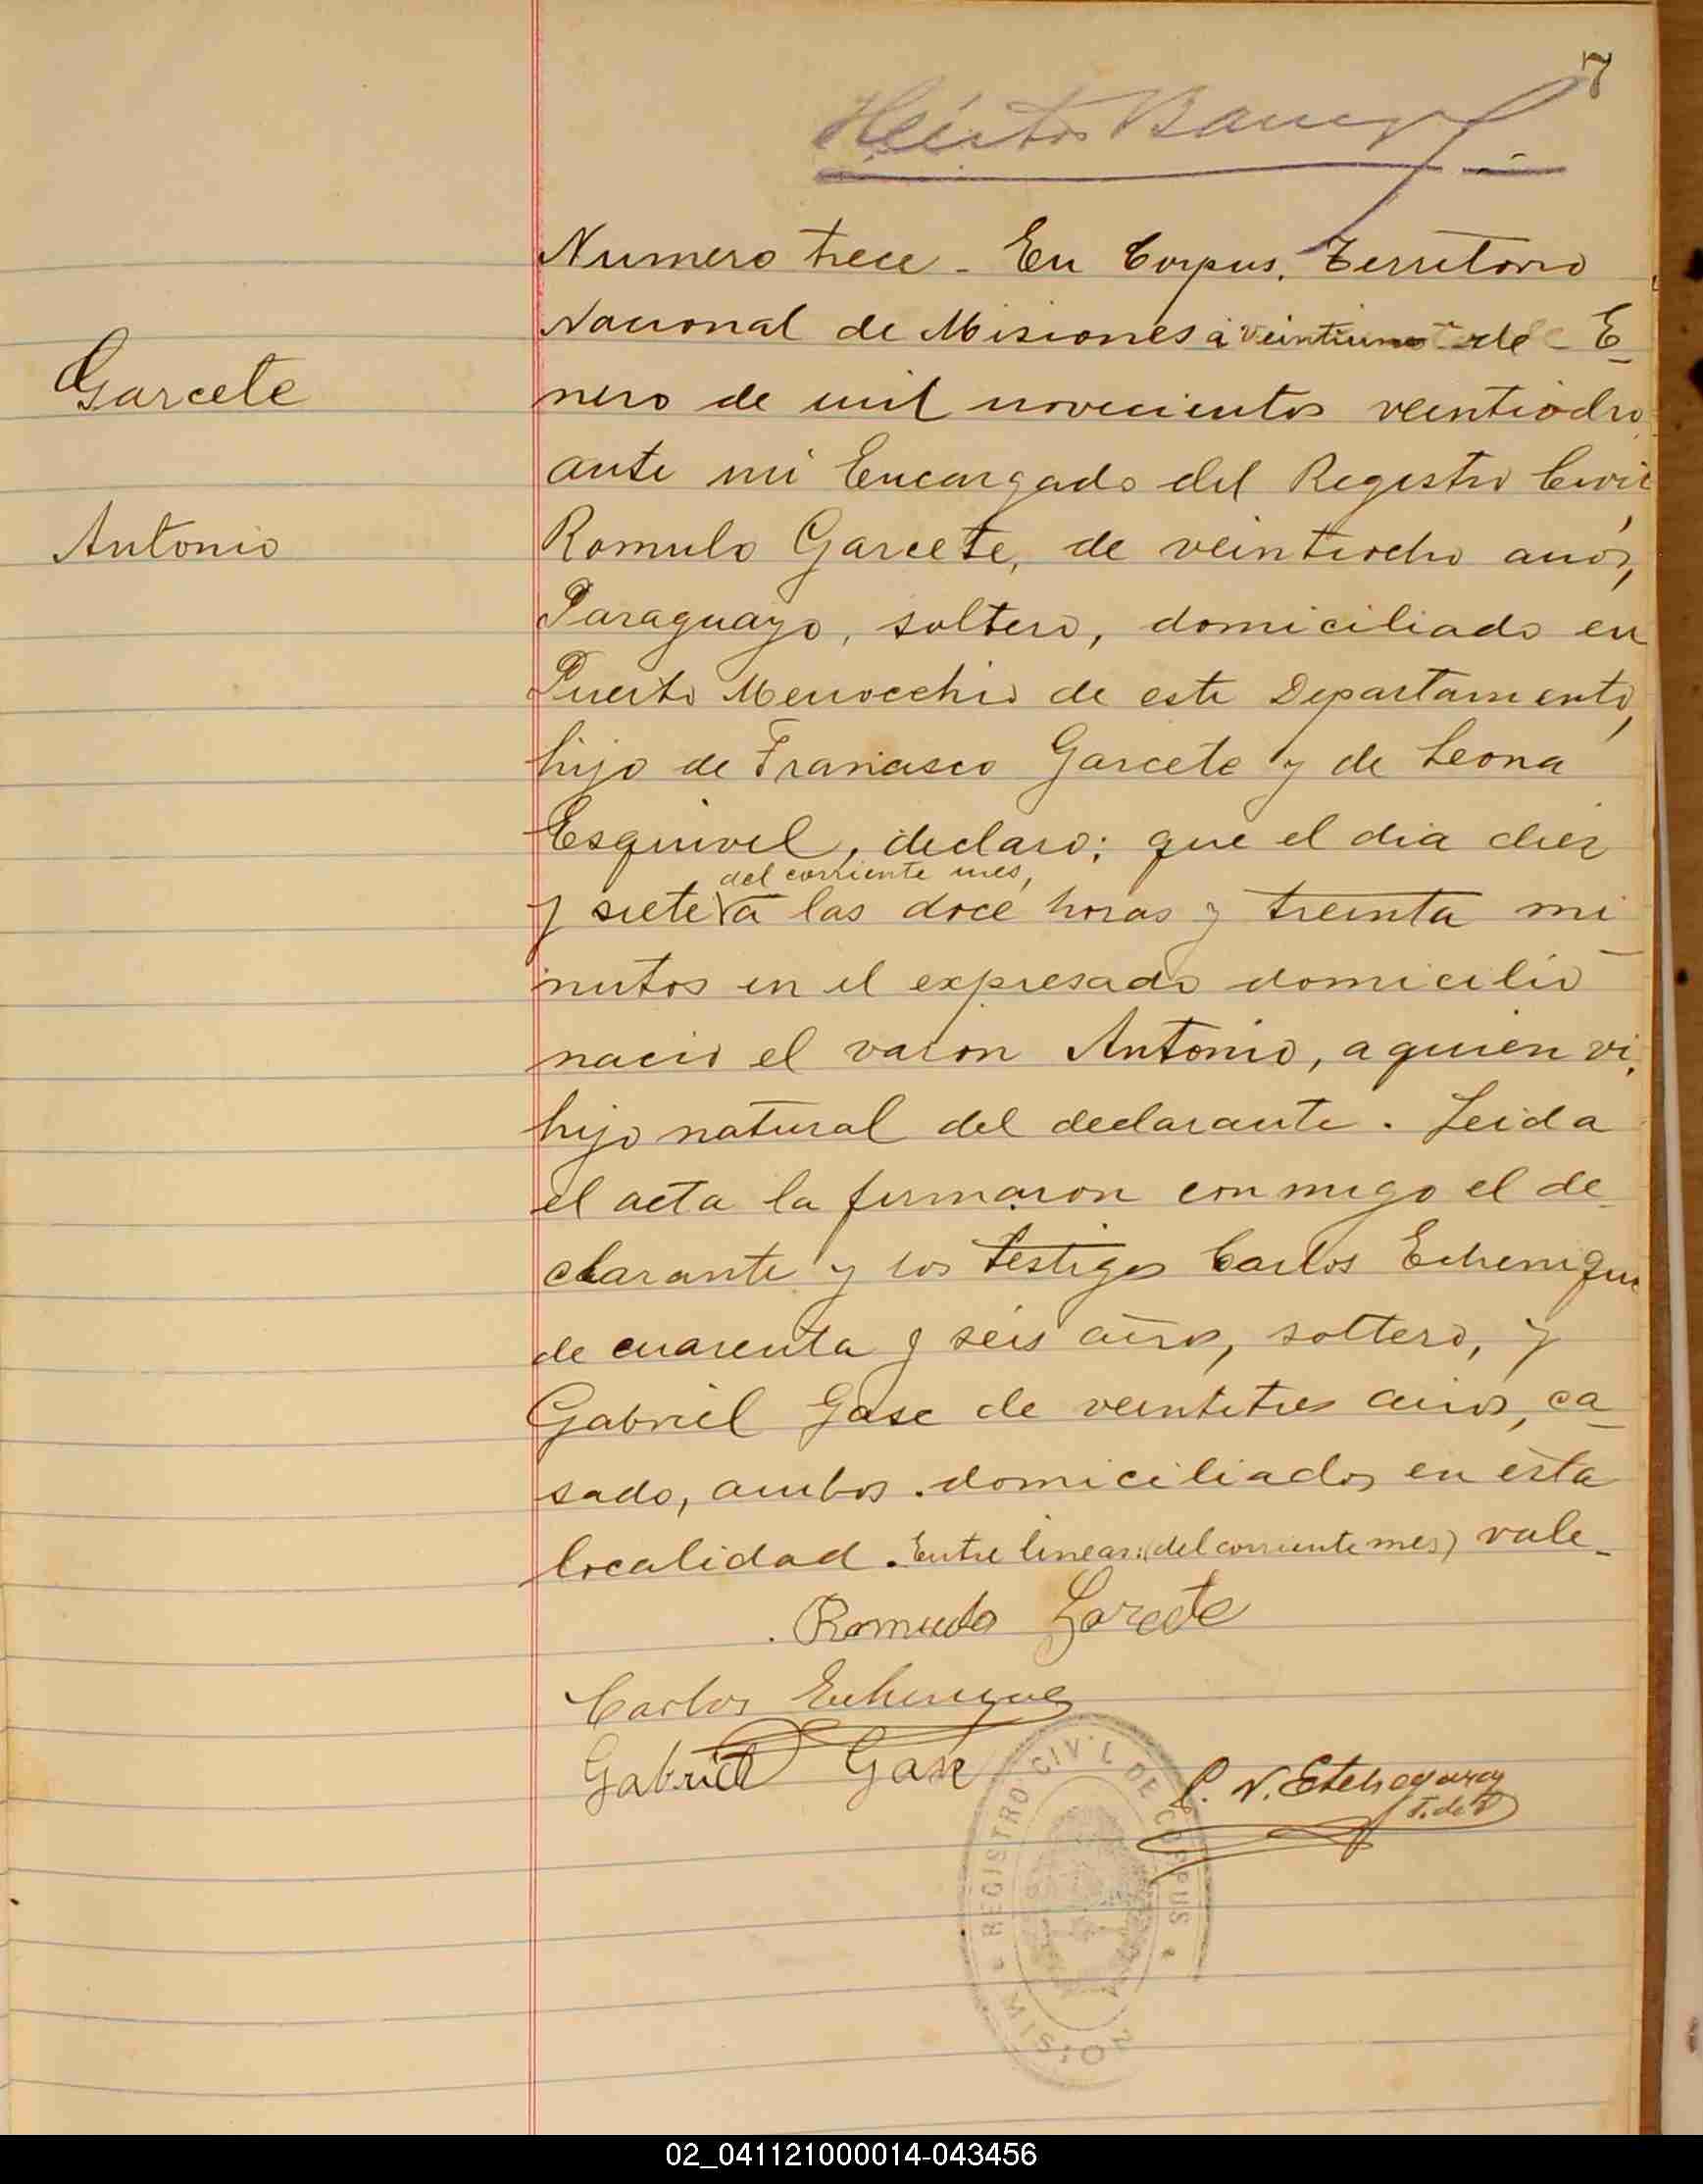 7
Héctor
Numero trece - En Corpus, Territorio
Nacional de Misiones á veintiuno de E-
Garcete
nero de mil novecientos veintiocho
ante mi Encargado del Registro Civil
Antonio
Romulo Garcete, de veintiocho anos,
Paraguayo, soltero, domiciliado en
Puerto Menocchio de este Departamento,
hijo de Francisco Garcete y de Leona
Esquivel, declaro: que el dia diez
del corriente mes,
y siete a las doce horas y treinta mi
nutos en el expresado domicilio
nacio el varon Antonio, a quien vi,
hijo natural del declarante. Leida
el acta la firmaron conmigo el de-
clarante y los testigos Carlos Echenique
de cuarenta y seis años, soltero, y
Gabriel Gase de veintitres años, ca-
sado, ambos domiciliados en esta
localidad. Entre lineas: (del corriente mes) vale-
Romulo Garcete
Carlos Echenique
Gabriel Gase
P. N. Etchegaray
J. de P
REGISTRO CIVIL DE CORPUS
MISIONES
02_041121000014-043456